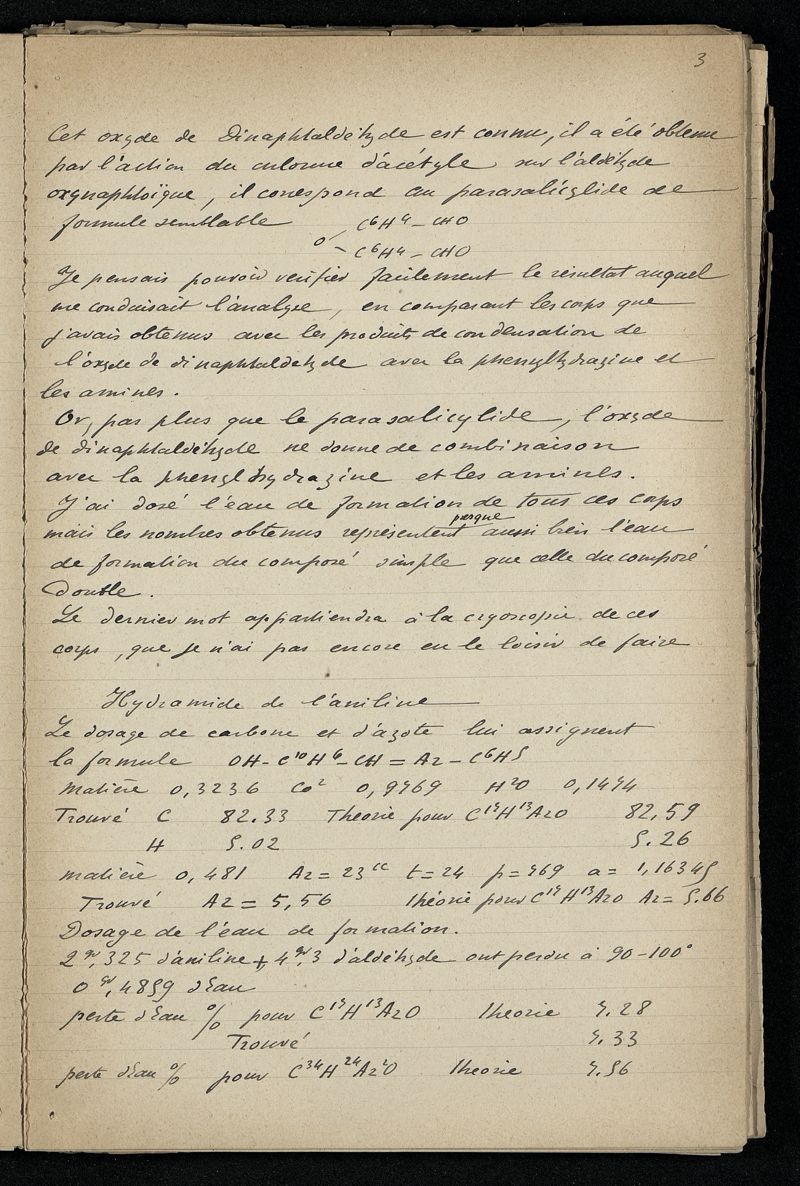 3
Cet oxyde de Dinaphtaldéhyde est connu, il a été obtenu
par l'action du chlorure d'acétyle sur l'aldéhyde
oxynaphtoïque, il correspond au parasalicylide de
formule semblable
C⁶H⁴ - CHO
O
C⁶H⁴ - CHO
Je pensais pouvoir vérifier facilement le résultat auquel
me conduisait l'analyse, en comparant les corps que
j'avais obtenus avec les produits de condensation de
l'oxyde de dinaphtaldéhyde avec la phenylhydrazine et
les amines.
Or, pas plus que le parasalicylide, l'oxyde
de dinaphtaldéhyde ne donne de combinaison
avec la phenylhydrazine et les amines.
J'ai dosé l'eau de formation de tous ces corps
mais les nombres obtenus représentent presque aussi bien l'eau
de formation du composé simple que celle du composé
double.
Le dernier mot appartiendra à la cryoscopie de ces
corps, que je n'ai pas encore eu le loisir de faire
Hydramide de l'aniline
Le dosage de carbone et d'azote lui assignent
la formule OH - C¹⁰H⁶ - CH = Az - C⁶H⁵
matière 0,3236 Co² 0,9769 H²O 0,1474
Trouvé C 82.33 Theorie pour C¹⁷H¹³AzO 82,59
H 5.02 5.26
matière 0,481 Az = 23cc t = 24 p = 769 a = 1,16345
Trouvé Az = 5,56 théorie pour C¹⁷H¹³AzO Az = 5.66
Dosage de l'eau de formation.
2gr,325 d'aniline + 4gr,3 d'aldéhyde ont perdu à 90-100°
0gr,4859 d'eau
perte d'eau % pour C¹⁷H¹³AzO théorie 7.28
Trouvé 7.33
perte d'eau % pour C³⁴H²⁴Az²O théorie 7.56